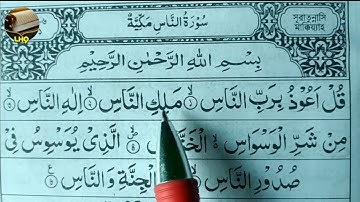 LHQ
سُوْرَةُ النَّاسِ مَكِّيَّةٌ
সূরাতুন্নাসি
মাক্কিয়্যাহ
بِسْمِ اللّٰهِ الرَّحْمٰنِ الرَّحِيْمِ
قُلْ اَعُوْذُ بِرَبِّ النَّاسِ ۙ۱ مَلِكِ النَّاسِ ۙ۲ اِلٰهِ النَّاسِ ۙ۳
مِنْ شَرِّ الْوَسْوَاسِ ۙ الْخَنَّ ۙ۴ الَّذِىْ يُوَسْوِسُ فِىْ
صُدُوْرِ النَّاسِ ۙ الْجِنَّةِ وَ النَّاسِ ۶